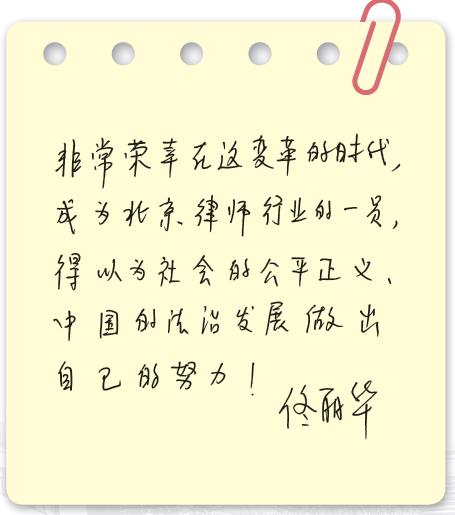 非常荣幸在这变革的时代,
成为北京律师行业的一员,
得以为社会的公平正义、
中国的法治发展做出
自己的努力!
佟丽华